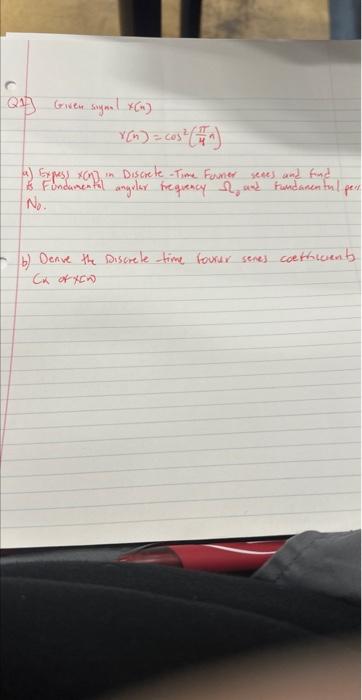 Q1) Given signal x(n)
x(n) = cos²(π/4 n)
a) Express x[n] in Discrete-Time Fourier series and find
its Fundamental angular frequency Ω₀ and fundamental per
N₀.
b) Derive the Discrete-time fourier series coefficients
Cₖ of x[n]